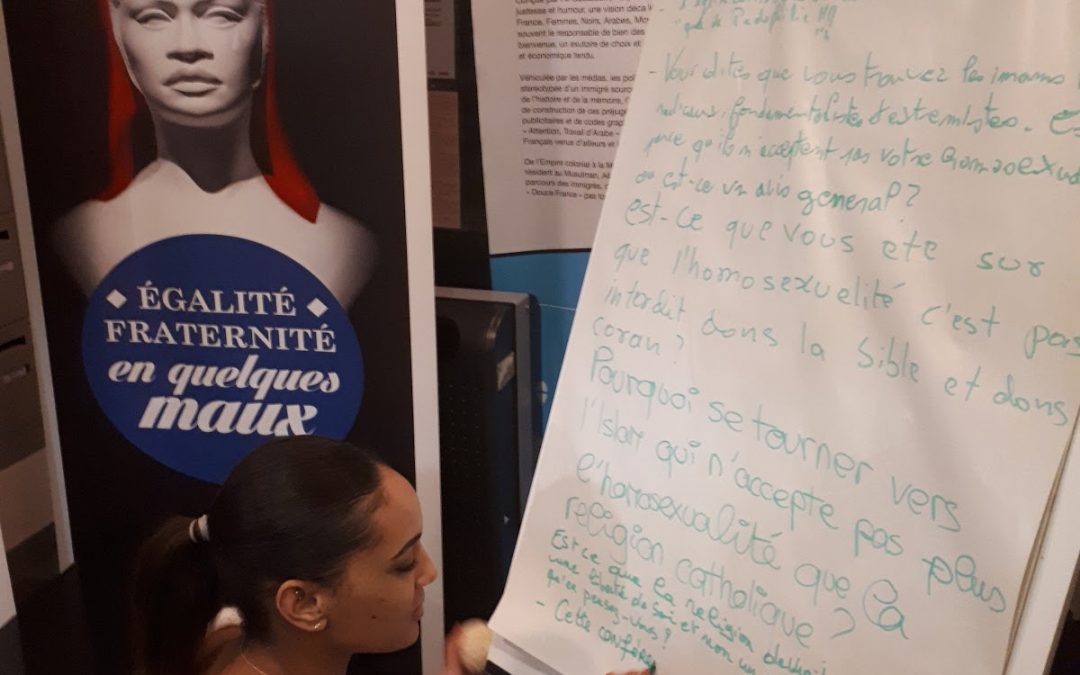 ÉGALITÉ
FRATERNITÉ
en quelques
maux
justesse et humour, une vision déca
France, Femmes, Noirs, Arabes,
souvent le responsable de bien des
bienvenue, un exutoire de choix et
et économique tendu.
Véhiculée par les médias, les
stéréotypée d'un immigré
de l'histoire et de la mémoire,
de construction de ces
publicitaires et de codes
« Attention, Travail d'Arabe »
Français venus d'ailleurs et
De l'Empire colonial à la
résident au Musulman,
parcours des immigrés,
« Douce France »
que la Pedophilie !!!
- Vous dites que vous trouvez les imams
radicaux, fondamentalistes extremistes.
parce qu'ils n'acceptent pas votre
ou est-ce un avis general ?
est-ce que vous ete sur
que l'homosexuelité c'est pas
interdit dans la bible et dans
coran ?
Pourquoi se tourner vers
l'Islam qui n'accepte pas plus
l'homosexualité que la
religion catholique ?
Est ce que la religion
une liberté de soi et non un
qu'en pensez-vous ?
- Cette